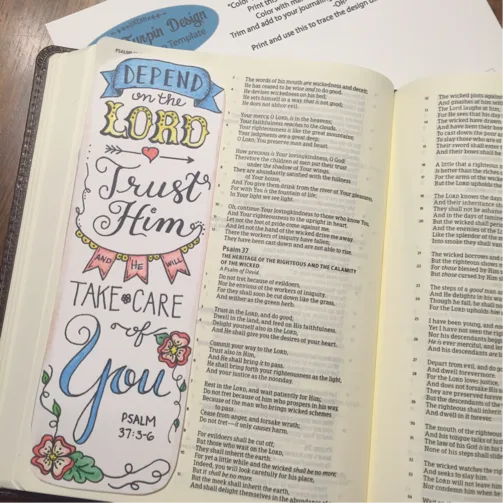 Turpin Design
Template
Print this
Color with ma
Trim and add to your journaling
Print and use this to trace the design o
PSALM
DEPEND
on the
LORD
Trust
Him
AND HE WILL
TAKE CARE
of
You
PSALM
37:3-6
The words of his mouth are wickedness and deceit;
He has ceased to be wise and to do good.
He devises wickedness on his bed;
He sets himself in a way that is not good;
He does not abhor evil.
Your mercy, O LORD, is in the heavens;
Your faithfulness reaches to the clouds.
Your righteousness is like the great mountains;
Your judgments are a great deep;
O LORD, You preserve man and beast.
How precious is Your lovingkindness, O God!
Therefore the children of men put their trust
under the shadow of Your wings.
They are abundantly satisfied with the fullness
of Your house,
And You give them drink from the river of Your pleasures.
For with You is the fountain of life;
In Your light we see light.
Oh, continue Your lovingkindness to those who know You,
And Your righteousness to the upright in heart.
Let not the foot of pride come against me,
And let not the hand of the wicked drive me away.
There the workers of iniquity have fallen;
They have been cast down and are not able to rise.
Psalm 37
THE HERITAGE OF THE RIGHTEOUS AND THE CALAMITY
OF THE WICKED
A Psalm of David.
Do not fret because of evildoers,
Nor be envious of the workers of iniquity.
For they shall soon be cut down like the grass,
And wither as the green herb.
Trust in the LORD, and do good;
Dwell in the land, and feed on His faithfulness.
Delight yourself also in the LORD,
And He shall give you the desires of your heart.
Commit your way to the LORD,
Trust also in Him,
And He shall bring it to pass.
He shall bring forth your righteousness as the light,
And your justice as the noonday.
Rest in the LORD, and wait patiently for Him;
Do not fret because of him who prospers in his way,
Because of the man who brings wicked schemes
to pass.
Cease from anger, and forsake wrath;
Do not fret—it only causes harm.
For evildoers shall be cut off;
But those who wait on the LORD,
They shall inherit the earth.
For yet a little while and the wicked shall be no more;
Indeed, you will look carefully for his place,
But it shall be no more.
But the meek shall inherit the earth,
And shall delight themselves in the abundance of
The wicked plots against
And gnashes at him w
The Lord laughs at him,
For He sees that his day
The wicked have drawn
And have bent their bow
To cast down the poor a
To slay those who are of
Their sword shall enter
And their bows shall be
A little that a righteous
Is better than the riches
For the arms of the wicke
But the LORD upholds
The LORD knows the days
And their inheritance sh
They shall not be asham
And in the days of famin
But the wicked shall per
And the enemies of the
Like the splendor of the
Into smoke they shall van
The wicked borrows and
But the righteous shows
For those blessed by Him
But those cursed by Him
The steps of a good man a
And He delights in his w
Though he fall, he shall
For the LORD upholds him
I have been young, and
Yet I have not seen the righ
Nor his descendants begg
He is ever merciful, and len
And his descendants are
Depart from evil, and do go
And dwell forevermore.
For the LORD loves justice,
And does not forsake His s
They are preserved forever
But the descendants of the
The righteous shall inherit
And dwell in it forever.
The mouth of the righteous
And his tongue talks of jus
The law of his God is in his
None of his steps shall slide
The wicked watches the ri
And seeks to slay him.
The LORD will not leave him
Nor condemn him when